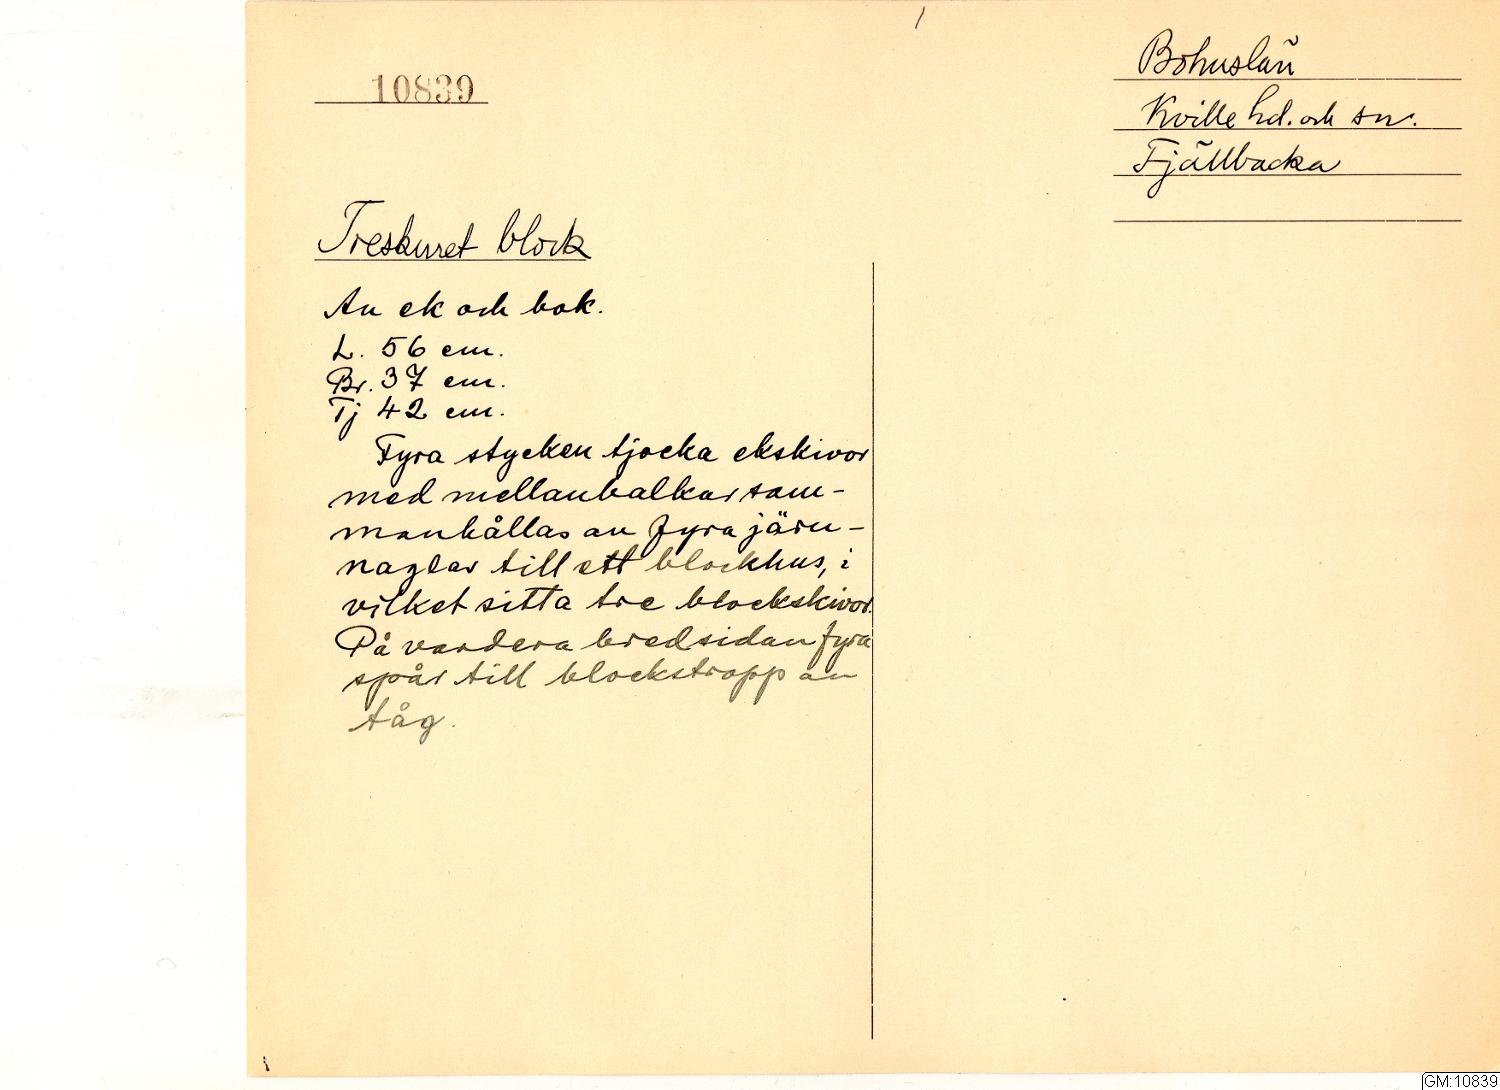 10839
Bohuslän
Kville hd. och sn.
Fjällbacka
Treskuret block
Av ek och bok.
L. 56 cm.
Br. 37 cm.
Tj 42 cm.
Fyra stycken tjocka ekskivor
med mellanbalkar sam-
manhållas av fyra järn-
naglar till ett blockhus, i
vilket sitta tre blockskivor.
På vardera bredsidan fyra
spår till blockstropp av
tåg.
GM:10839